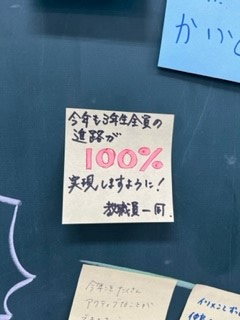 かいと
今年も3年生全員の
進路が
100%
実現しますように!
教職員一同.
今年もたくさん
アクティブなことが